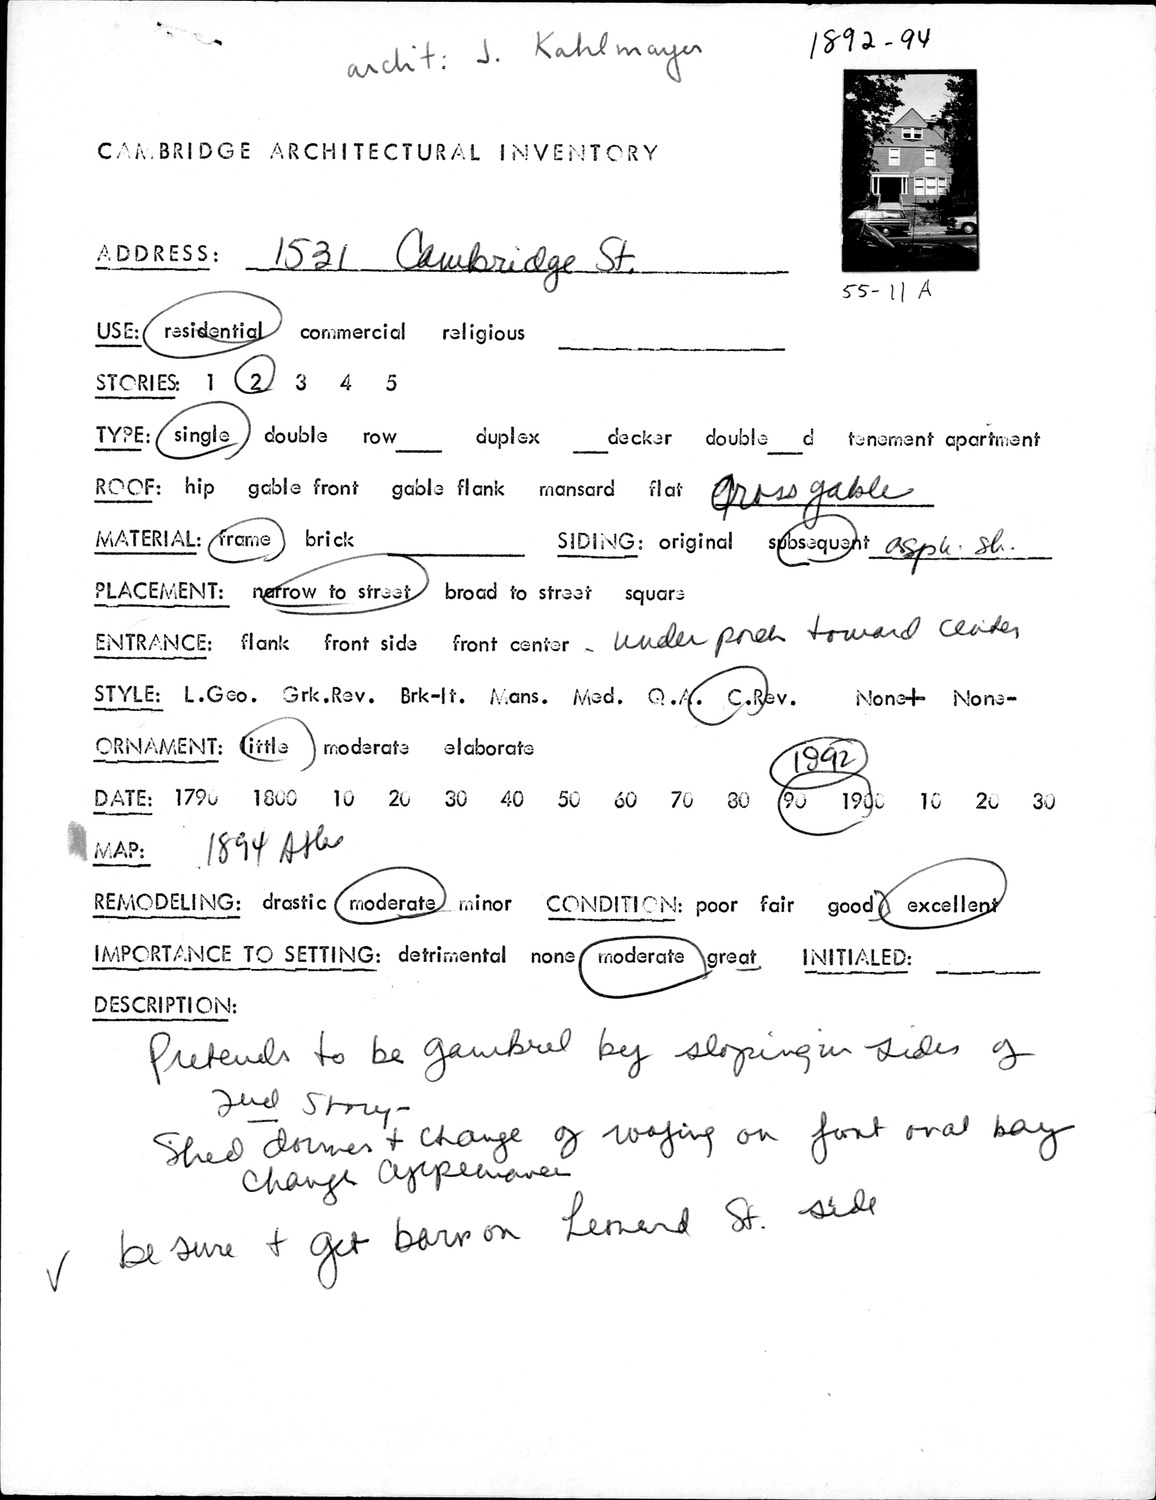 archit: J. Kahlmayer
1892-94
CAMBRIDGE ARCHITECTURAL INVENTORY
ADDRESS: 1531 Cambridge St.
55-11 A
USE: residential commercial religious
STORIES: 1 2 3 4 5
TYPE: single double row___ duplex ___decker double___d tenement apartment
ROOF: hip gable front gable flank mansard flat cross gable
MATERIAL: frame brick SIDING: original subsequent asph. sh.
PLACEMENT: narrow to street broad to street square
ENTRANCE: flank front side front center - under porch toward center
STYLE: L.Geo. Grk.Rev. Brk-It. Mans. Med. Q.A. C.Rev. None+ None-
ORNAMENT: little moderate elaborate
1892
DATE: 1790 1800 10 20 30 40 50 60 70 80 90 1900 10 20 30
MAP: 1894 Atlas
REMODELING: drastic moderate minor CONDITION: poor fair good excellent
IMPORTANCE TO SETTING: detrimental none moderate great INITIALED:
DESCRIPTION:
Pretends to be gambrel by sloping in sides of
2nd Story-
Shed dormer + change of roofing on front oval bay
change appearance
✓ be sure + get barn on Leonard St. side